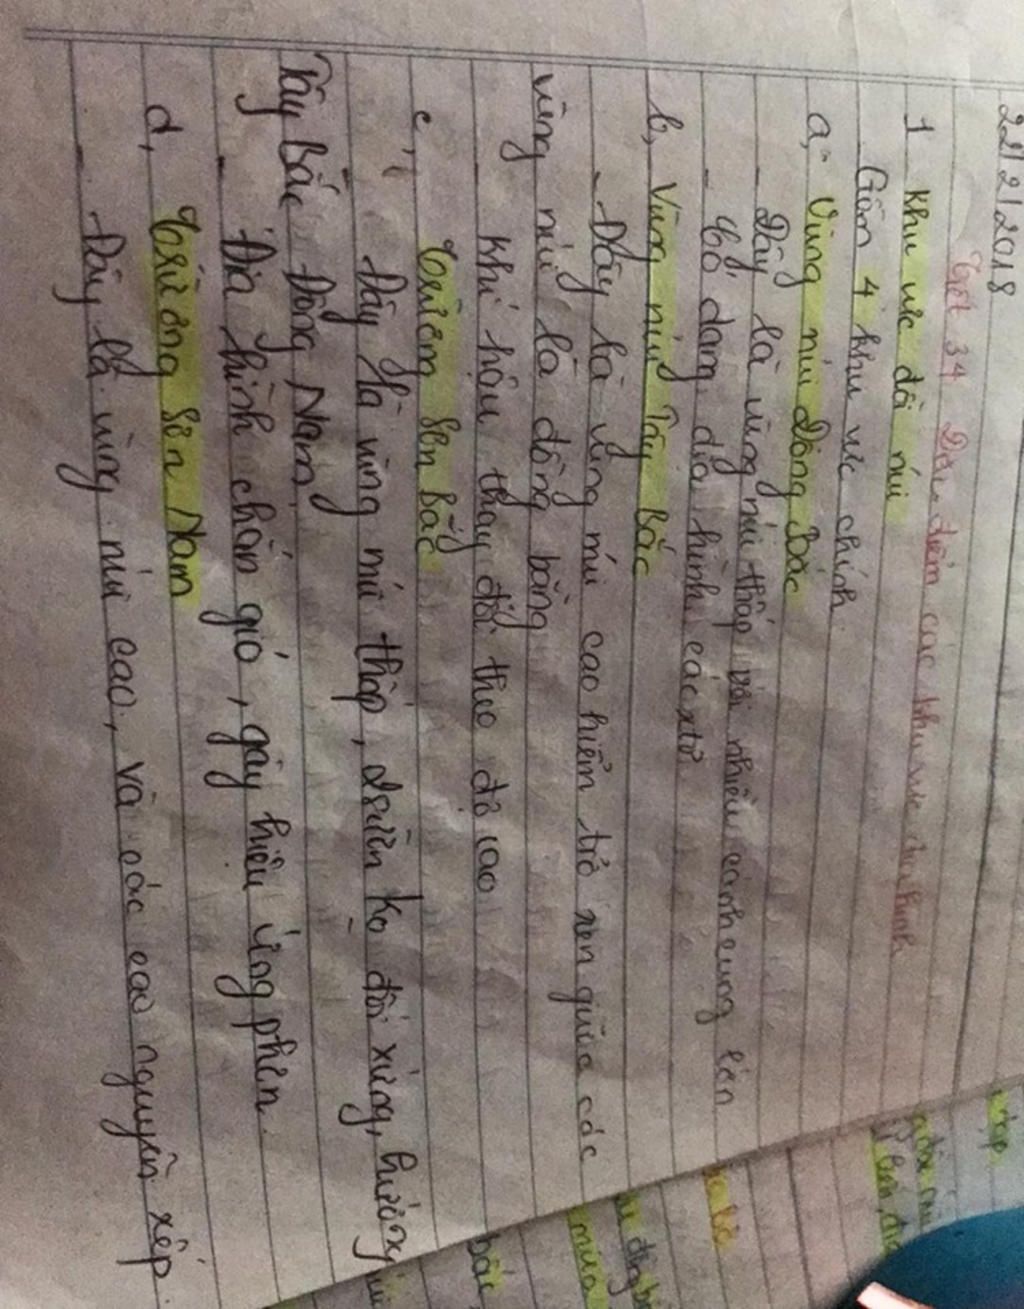 22/2/2018
Tiết 34 Đặc điểm các khu vực địa hình
1 Khu vực đồi núi
Gồm 4 khu vực chính
a, Vùng núi Đông Bắc
- Đây là vùng núi thấp với nhiều cánh cung lớn
- Có dạng địa hình cácxtơ
b, Vùng núi Tây Bắc
- Đây là vùng núi cao hiểm trở xen giữa các
vùng núi là đồng bằng
Khí hậu thay đổi theo độ cao
c, Trường Sơn Bắc
- Đây là vùng núi thấp, sườn ko đối xứng, hướng
Tây Bắc Đông Nam
- Địa hình chắn gió, gây hiệu ứng phơn
d, Trường Sơn Nam
- Đây là vùng núi cao, và các cao nguyên xếp